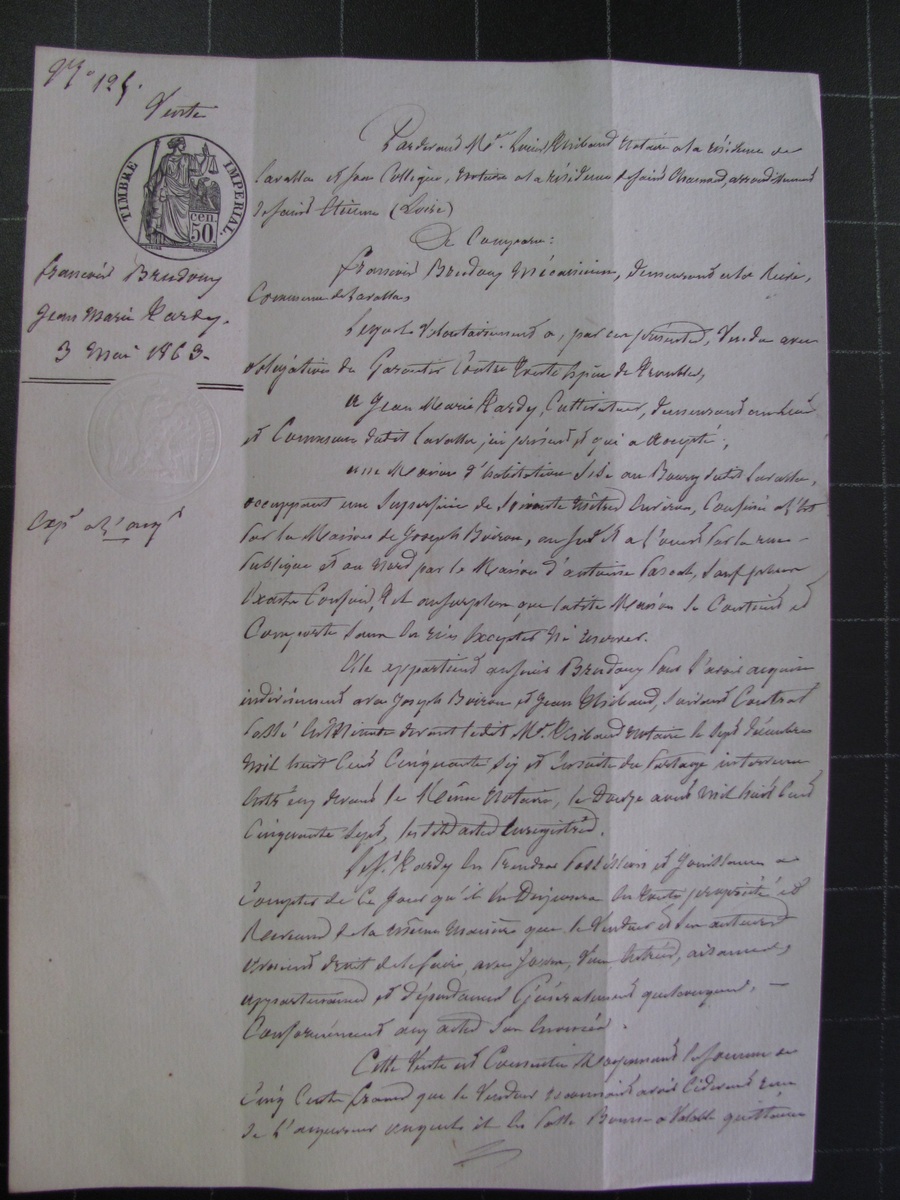 N° 125.
Vente
TIMBRE IMPERIAL.
cen. 50
françois Brudony
Jean Marie Hardy.
3 Mai 1863.
Expé à l'acqr
Pardevant Me Louis Thibaud Notaire à la résidence de
Lavalla et son Collègue, Notaire à la résidence de Saint Chamond, arrondissement
de Saint Etienne (Loire)
A Comparu:
françois Brudony Mécanicien, demeurant à la Rive,
Commune de Lavalla
Lequel Volontairement a, par ces présentes, Vendu avec
obligation de Garantir Contre toute espèce de troubles,
A Jean Marie Hardy, Cultivateur, demeurant au lieu
et Commune dudit Lavalla, ici présent et qui a accepté;
une Maison d'habitation Sise au Bourg dudit Lavalla,
occuppant une Superficie de Soixante Mètres environ, Confinée à l'Est
par la Maison de Joseph Boiron, au Sud et à l'ouest par la rue
publique et au Nord par la Maison d'antoine Pascal, Sauf
exacts Confins, et au surplus que ladite Maison Se Contient et
Comporte Sans en rien Excepter Ni réserver.
Elle appartient au Brudony Pour l'avoir acquise
indivisément avec Joseph Boiron et Jean Thibaud, Suivant Contrat
passé en Minute devant ledit Me Thibaud Notaire le Sept décembre
Mil huit Cent Cinquante Six et ensuite du Partage intervenu
entr'eux devant le Même Notaire, le Douze avril Mil huit Cent
Cinquante Sept, lesdits actes Enregistrés.
Le Sr Hardy En Prendra Possession et Jouissance à
Compter de Ce Jour qu'il En Disposera En toute propriété et
de la même Manière que le Vendeur et Ses auteurs
avaient droit de le faire, avec Jours, Vues, entrées, aisances,
appartenances et dépendances Généralement quelconques,
Conformément aux actes Sus énoncés.
Cette Vente est Consentie Moyennant la Somme de
Cinq Cents francs que le Vendeur reconnait avoir
de l'acquéreur et En Passe Bonne et Valable quittance